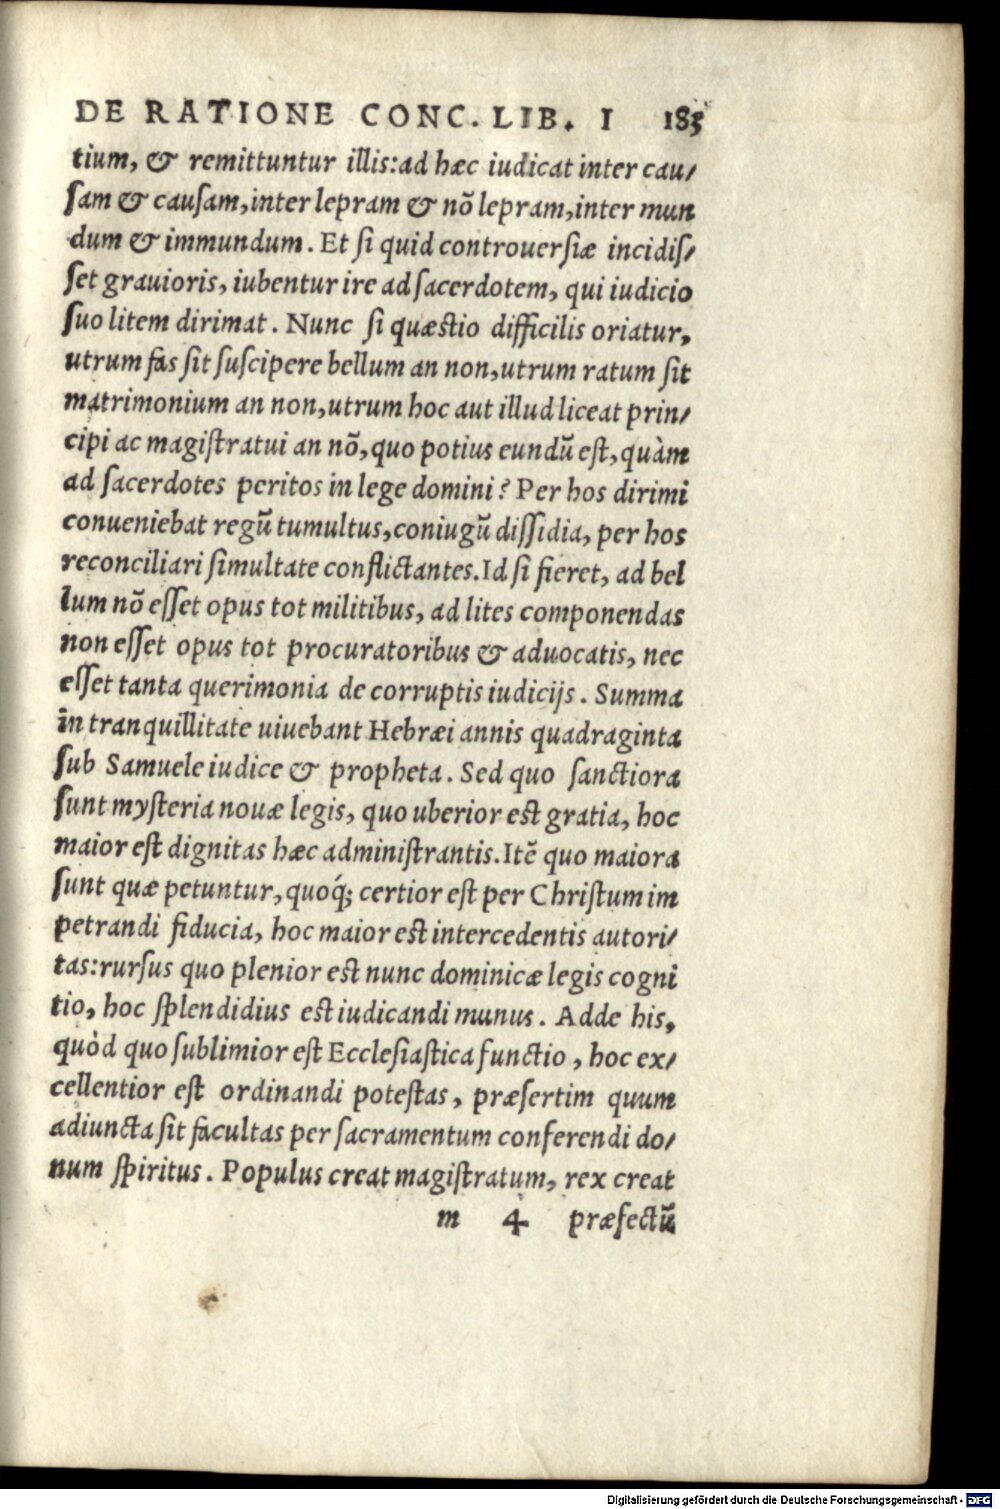 DE RATIONE CONC. LIB. I 185
tium, & remittuntur illis: ad hæc iudicat inter cau/
ſam & cauſam, inter lepram & nõ lepram, inter mun
dum & immundum. Et ſi quid controuerſiæ incidiſ/
ſet grauioris, iubentur ire ad ſacerdotem, qui iudicio
ſuo litem dirimat. Nunc ſi quæſtio difficilis oriatur,
utrum fas ſit ſuſcipere bellum an non, utrum ratum ſit
matrimonium an non, utrum hoc aut illud liceat prin/
cipi ac magiſtratui an nõ, quo potius eundũ eſt, quàm
ad ſacerdotes peritos in lege domini? Per hos dirimi
conueniebat regũ tumultus, coniugũ diſſidia, per hos
reconciliari ſimultate conflictantes. Id ſi fieret, ad bel
lum nõ eſſet opus tot militibus, ad lites componendas
non eſſet opus tot procuratoribus & aduocatis, nec
eſſet tanta querimonia de corruptis iudicijs. Summa
in tranquillitate uiuebant Hebræi annis quadraginta
ſub Samuele iudice & propheta. Sed quo ſanctiora
ſunt myſteria nouæ legis, quo uberior eſt gratia, hoc
maior eſt dignitas hæc adminiſtrantis. Itẽ quo maiora
ſunt quæ petuntur, quoq́; certior eſt per Chriſtum im
petrandi fiducia, hoc maior eſt intercedentis autori/
tas: rurſus quo plenior eſt nunc dominicæ legis cogni
tio, hoc ſplendidius eſt iudicandi munus. Adde his,
quòd quo ſublimior eſt Eccleſiaſtica functio, hoc ex/
cellentior eſt ordinandi poteſtas, præſertim quum
adiuncta ſit facultas per ſacramentum conferendi do/
num ſpiritus. Populus creat magiſtratum, rex creat
m 4 præfectũ
Digitalisierung gefördert durch die Deutsche Forschungsgemeinschaft - DFG